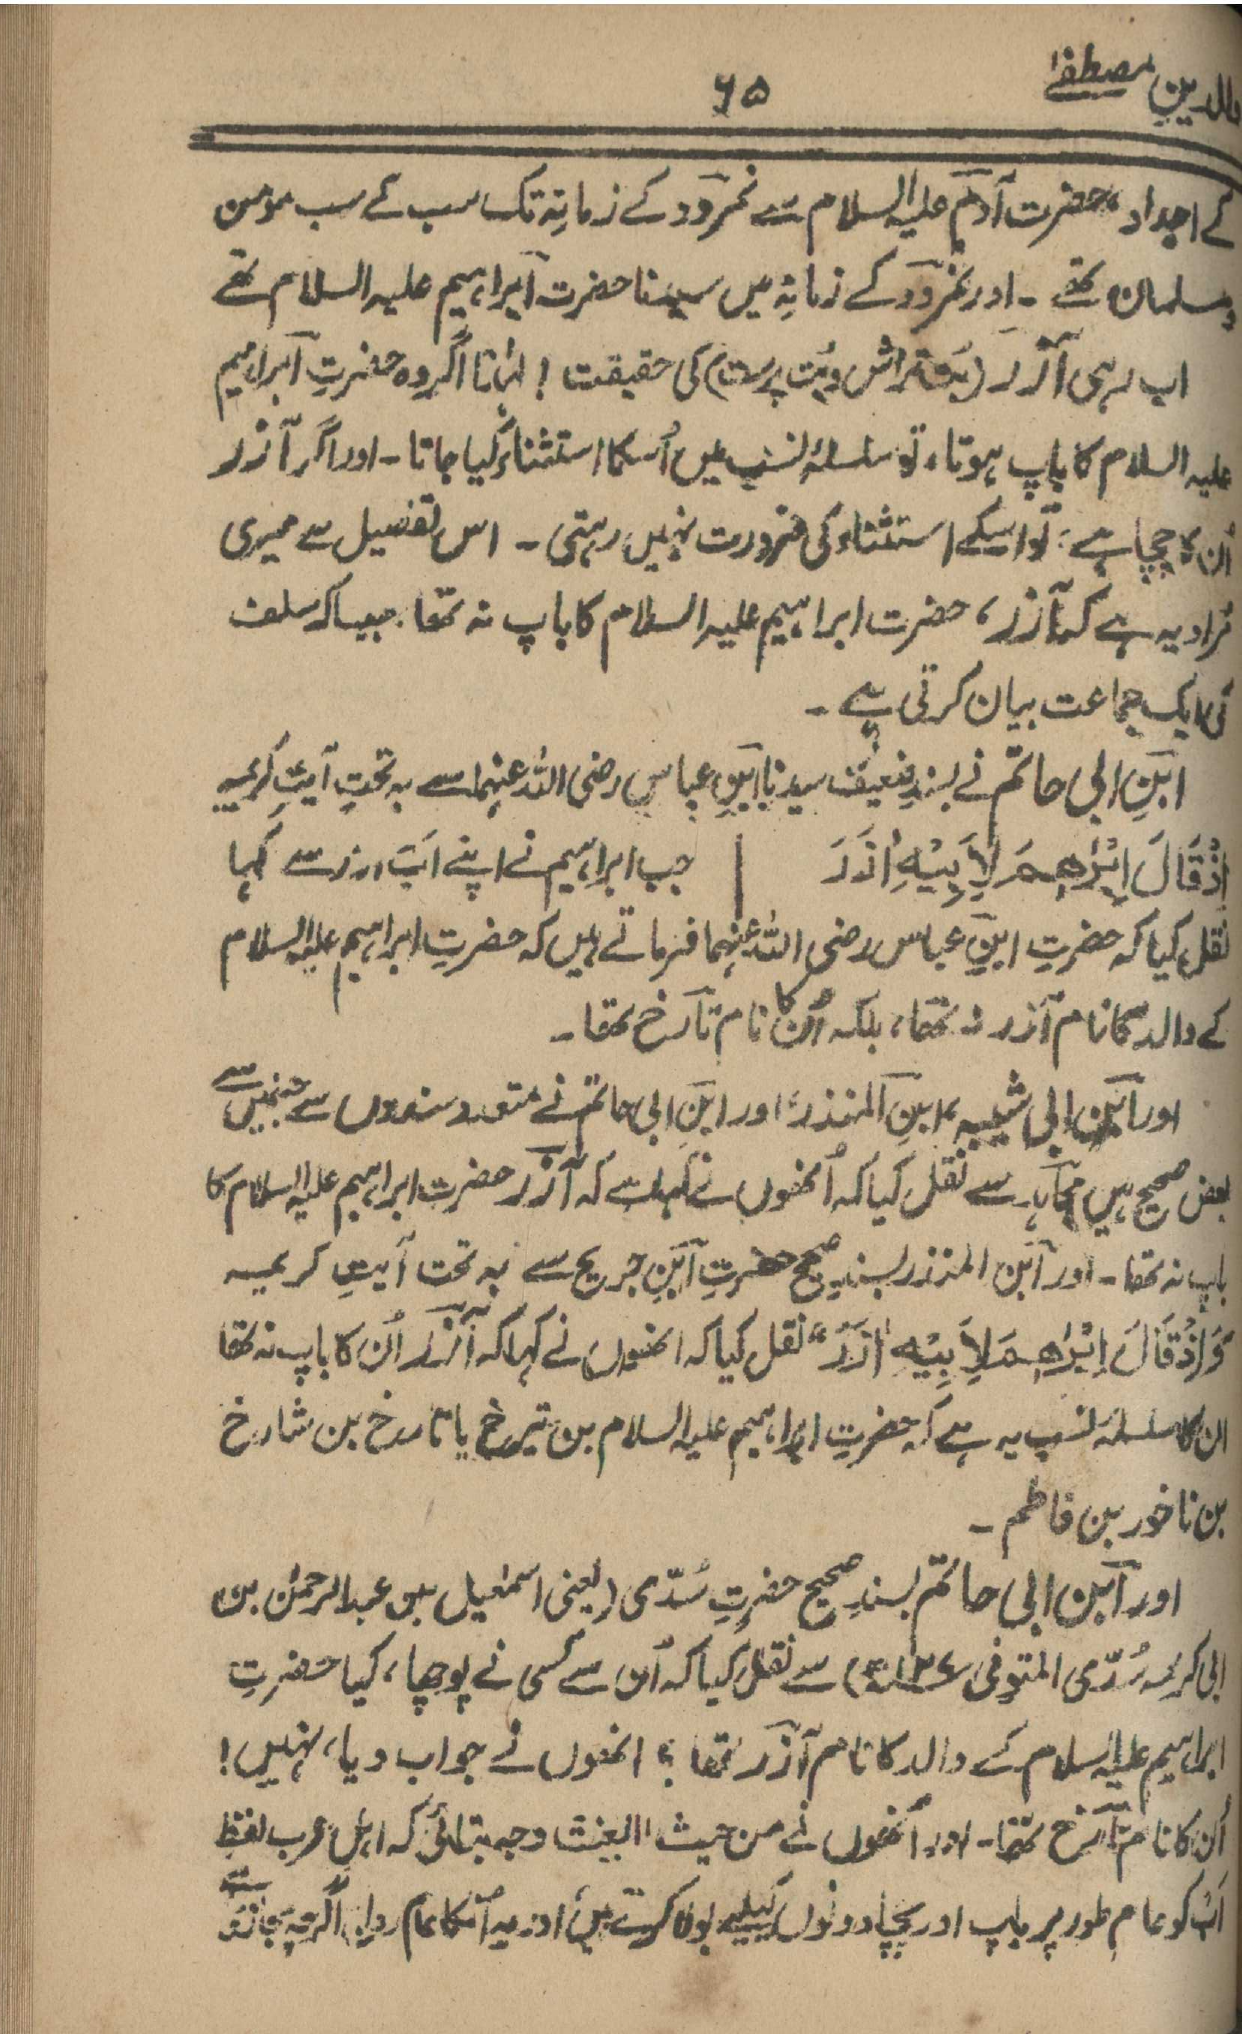 والدین مصطفےٰ
۶۵
کے اجداد، حضرت آدم علیہ السلام سے نمرود کے زمانہ تک سب کے سب مومن
ومسلمان تھے ۔ اور نمرود کے زمانہ میں سیدنا حضرت ابراہیم علیہ السلام تھے
اب رہی آزر (بُت تراش وبُت پرست) کی حقیقت ! لہٰذا اگر وہ حضرتِ ابراہیم
علیہ السلام کا باپ ہوتا، تو سلسلۂ نسب میں اُسکا استثناء کیا جاتا ۔ اور اگر آزر
اُن کا چچا ہے، تو اسکے استثناء کی ضرورت نہیں رہتی ۔ اس تفصیل سے میری
مُراد یہ ہے کہ آزر، حضرت ابراہیم علیہ السلام کا باپ نہ تھا. جیسا کہ سلف
کی ایک جماعت بیان کرتی ہے ۔
ابنِ ابی حاتم نے بسندِ ضعیف سیدنا ابنِ عباس رضی اللہ عنہما سے بہ تحتِ آیتِ کریمہ
اِذْ قَالَ اِبْرٰهِمَ لِاَبِیْهِ اٰزَرَ | جب ابراہیم نے اپنے اَبْ ازر سے کہا
نقل کیا کہ حضرتِ ابنِ عباس رضی اللہ عنہما فرماتے ہیں کہ حضرتِ ابراہیم علیہ السلام
کے والد کا نام آزر نہ تھا، بلکہ اُن کا نام تارخ تھا ۔
اور ابن ابی شیبہ، ابنِ المنذر، اور ابنِ ابی حاتم نے متعدد سندوں سے جنمیں سے
بعض صحیح ہیں مجاہد سے نقل کیا کہ اُنھوں نے کہا ہے کہ آزر حضرت ابراہیم علیہ السلام کا
باپ نہ تھا ۔ اور ابن المنذر بسندِ صحیح حضرتِ ابنِ جریج سے بہ تحت آیتِ کریمہ
وَاِذْ قَالَ اِبْرٰهِمَ لِاَبِیْهِ اٰزَرَ" نقل کیا کہ انھوں نے کہا کہ آزر اُن کا باپ نہ تھا
ان کا سلسلۂ نسب یہ ہے کہ حضرتِ ابراہیم علیہ السلام بن تیرخ یا تارخ بن شارخ
بن ناخور بن فاطم ۔
اور ابن ابی حاتم بسندِ صحیح حضرتِ سُدّی (یعنی اسمٰعیل بن عبدالرحمٰن بن
ابی کریمہ سُدّی المتوفی ۱۲۷ھ) سے نقل کیا کہ اُن سے کسی نے پوچھا، کیا حضرتِ
ابراہیم علیہ السلام کے والد کا نام آزر تھا ؟ انھوں نے جواب دیا، نہیں !
اُن کا نام تارخ تھا ۔ اور اُنھوں نے من حیث اللغت وجہ بتائی کہ اہلِ عرب لفظِ
اَبْ کو عام طور پر باپ اور چچا دونوں کیلیے بولا کرتے ہیں، اور یہ اُنکا عام رواج اگرچہ مجازًا